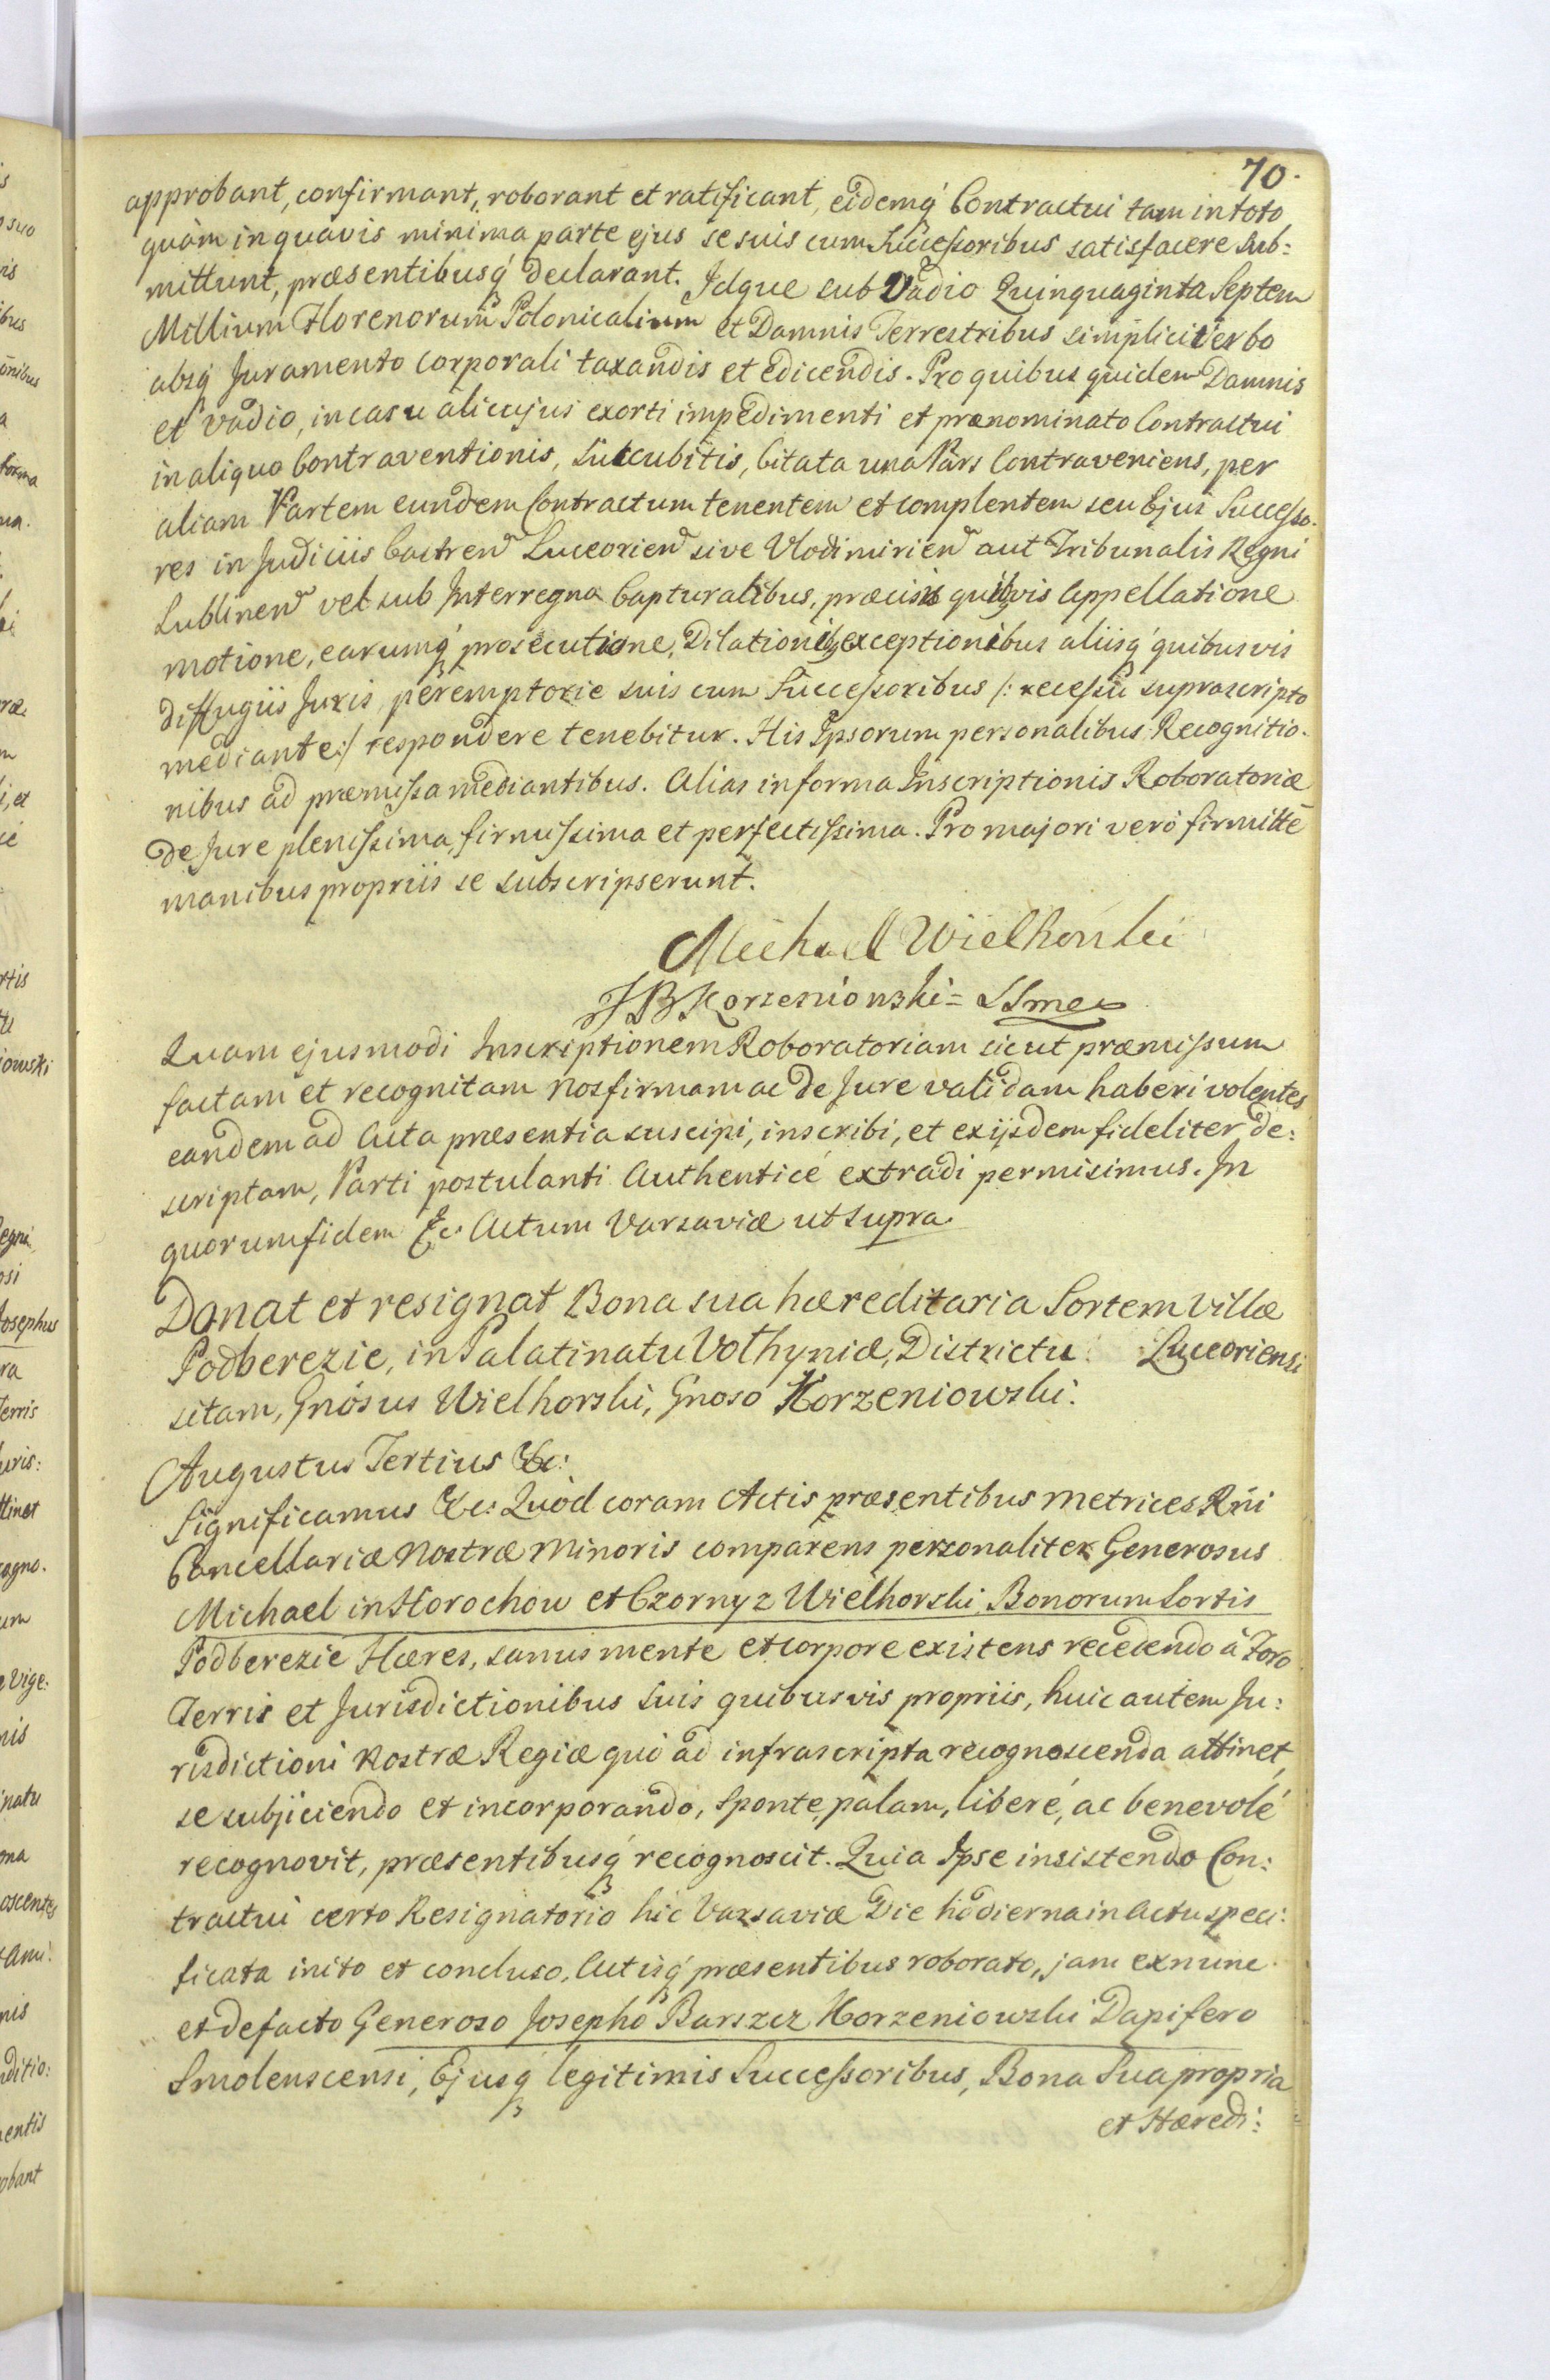 70.
approbant, confirmant, roborant et ratificant, eidemq́ Contractui tam in toto
quàm in quavis minima parte ejus se suis cum Successoribus satisfacere sub:
mittunt, præsentibusq́ declarant. Idque sub Vadio Quinquaginta Septem
Millium Florenorum Polonicalium et Damnis Terrestribus simplici Verbo
absq́ Juramento corporali taxandis et edicendis. Pro quibus quidem Damnis
et Vadio, in casu alicujus exorti impedimenti et prænominato Contractui
in aliquo Contraventionis, succubitis, Citata una Pars Contraveniens, per
aliam Partem eundem Contractum tenentem et complentem seu Ejus Successo.
res in Judiciis Castren Luceorien sive Vlodimirien aut Tribunalis Regni
Lublinen vel sub Interregna Capturalibus, præcisis quibvis Appellatione
motione, earumq́ prosecutione, Dilationibꝫ exceptionibus aliisq́ quibusvis
diffugiis Juris peremptorie suis cum Successoribus /: recessu suprascripto
mediante :/ respondere tenebitur. His Ipsorum personalibus Recognitio.
nibus ad præmissa mediantibus. Alias in forma Inscriptionis Roboratoriæ
de Jure plenissima, firmissima et perfectissima. Pro majori verò firmitte
manibus propriis se subscripserunt.
Michael Wielhorski
JB Korzeniowski = SSmey
Quam ejusmodi Inscriptionem Roboratoriam sicut præmissum
factam et recognitam Nos firmam ac de Jure validam haberi volentes
eandem ad Acta præsentia suscipi, inscribi, et ex ijsdem fideliter de:
scriptam, Parti postulanti Authenticé extradi permisimus. In
quorum fidem &c. Actum Varsaviæ ut supra.
Donat et resignat Bona sua hæreditaria Sortem Villæ
Podberezie, in Palatinatu Volhyniæ, Districtu Luceoriensi
sitam, Gnosus Wielhorski, Gnoso Korzeniowski.
Augustus Tertius &c:
Significamus &c: Quòd coram Actis præsentibus Metrices Rni
Cancellariæ Nostræ Minoris comparens personaliter Generosus
Michael in Horochow et Czornyz Wielhorski Bonorum Sortis
Podberezie Hæres, sanus mente et corpore existens recedendo à Foro
Terris et Jurisdictionibus suis quibusvis propriis, huic autem Ju:
risdictioni Nostræ Regiæ quò ad infrascripta recognoscenda attinet,
se subjiciendo et incorporando, sponte, palam, liberé, ac benevolé
recognovit, præsentibusq́ recognoscit. Quia Ipse insistendo Con:
tractui certo Resignatorio hic Varsaviæ Die hodierna in Actu speci:
ficata inito et concluso, Actisq́ præsentibus roborato, jam ex nunc
et de facto Generoso Josepho Barszcz Korzeniowski Dapifero
Smolenscensi, Ejusq́ legitimis Successoribus, Bona Sua propria
et Hæredi: